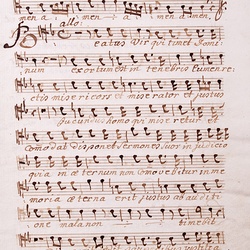 men a men a a men. amen.
allo
Beatus Vir qui timet Domi
num exortum est in tenebris lumen re
ctis misericors et miserator et justus
Jucundus homo qui miseretur et
comodat disponet sermones suos in judicio
quia in æternum non comovebitur in me
moria æterna erit justus ab auditi
one mala non timebit